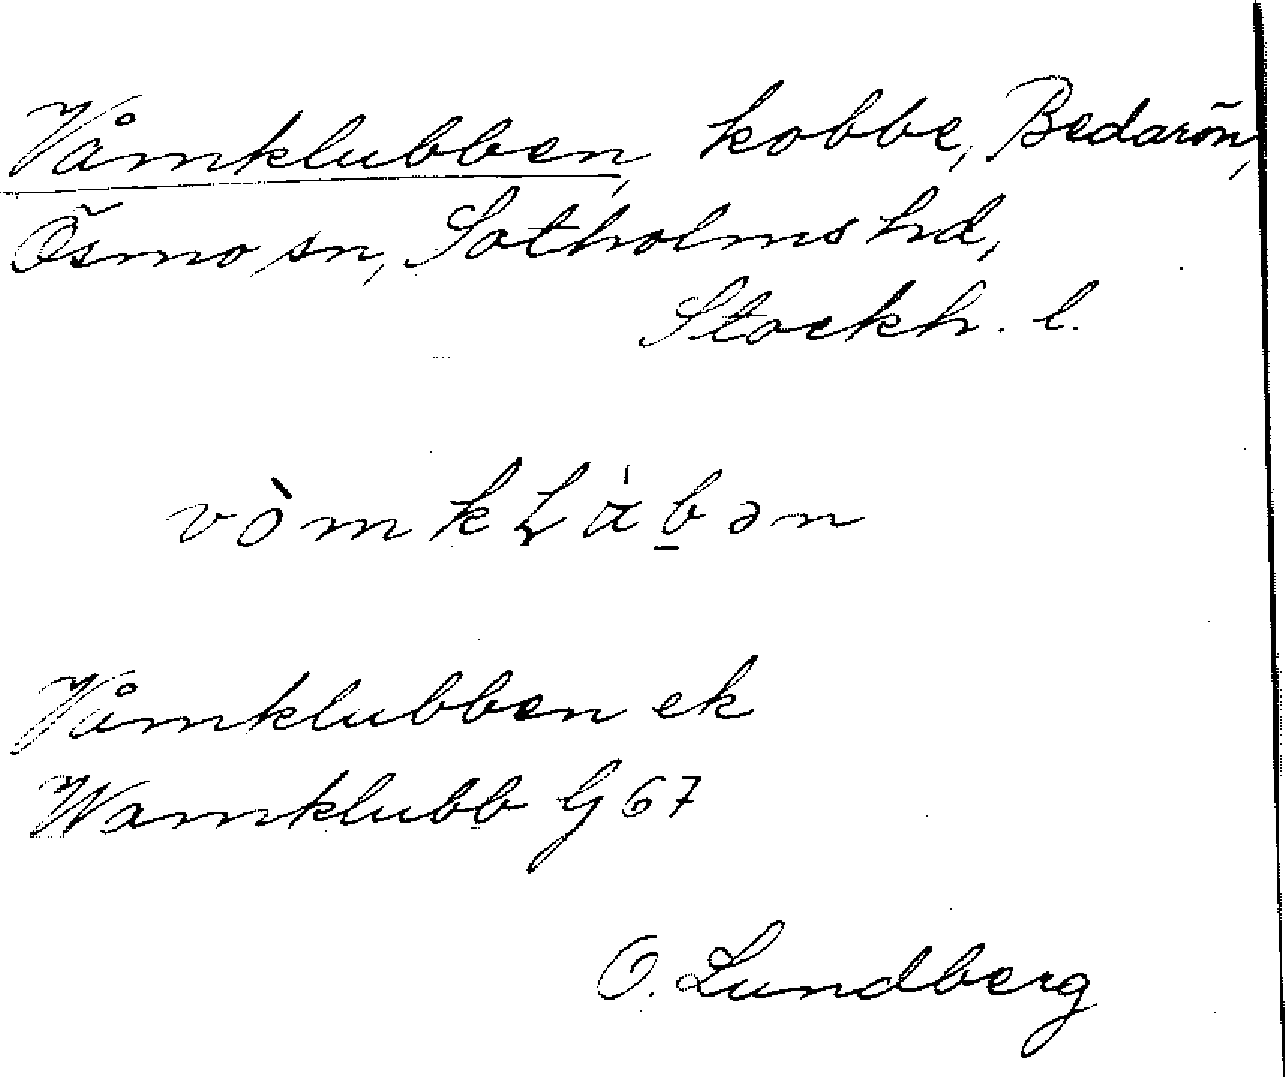 Våmklubben, kobbe, Bedarön,
Ösmo sn, Sotholms hd,
Stockh. l.
Våmklubben ek
Wamklubb G 67
O. Lundberg